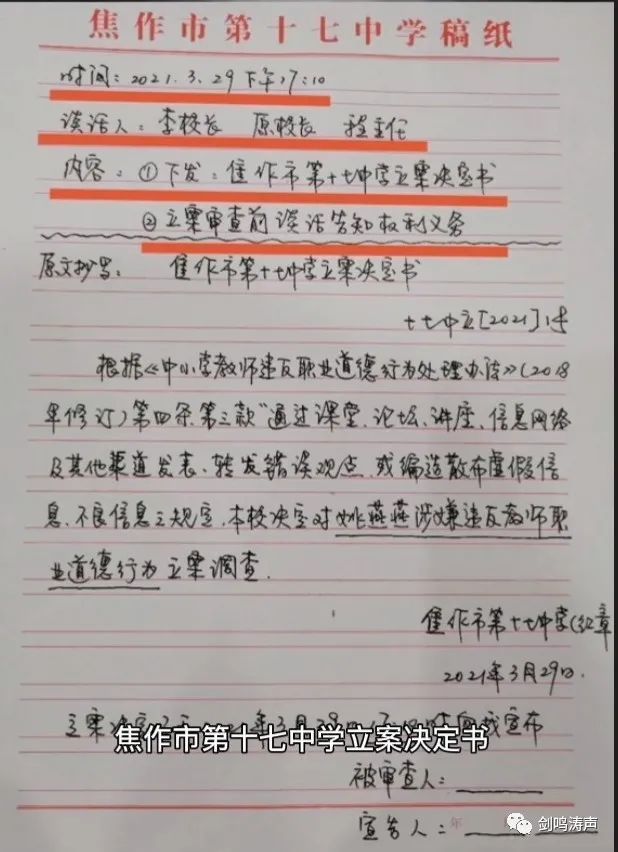 焦作市第十七中学稿纸
时间：2021.3.29下午17:10
谈话人：李校长 原校长 程主任
内容：①下发：焦作市第十七中学立案决定书
②立案审查前谈话告知权利义务
原文抄写： 焦作市第十七中学立案决定书
十七中立[2021]1号
根据《中小学教师违反职业道德行为处理办法》（2018
年修订）第四条第三款“通过课堂、论坛、讲座、信息网络
及其他渠道发表、转发错误观点，或编造散布虚假信
息、不良信息之规定，本校决定对姚燕燕涉嫌违反教师职
业道德行为立案调查．
焦作市第十七中学（红章
2021年3月29日．
立案决定 年3月 日 宣布
焦作市第十七中学立案决定书
被审查人：
宣告人： 年
剑鸣涛声